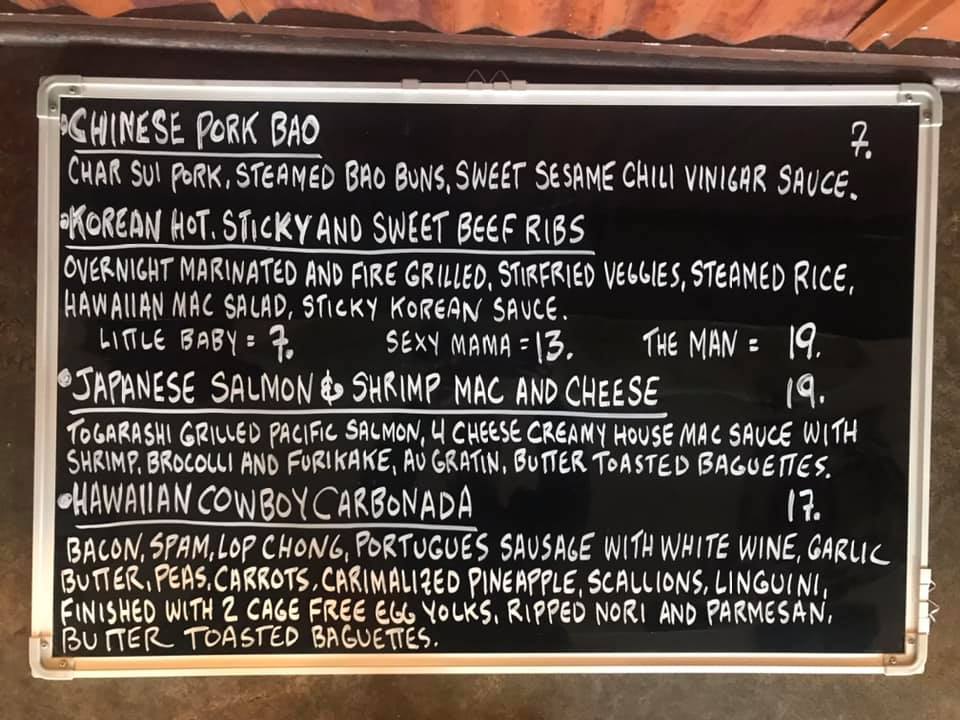 •CHINESE PORK BAO 7.
CHAR SUI PORK, STEAMED BAO BUNS, SWEET SESAME CHILI VINIGAR SAUCE.
•KOREAN HOT, STICKY AND SWEET BEEF RIBS
OVERNIGHT MARINATED AND FIRE GRILLED, STIRFRIED VEGGIES, STEAMED RICE,
HAWAIIAN MAC SALAD, STICKY KOREAN SAUCE.
LITTLE BABY = 7. SEXY MAMA = 13. THE MAN = 19.
•JAPANESE SALMON & SHRIMP MAC AND CHEESE 19.
TOGARASHI GRILLED PACIFIC SALMON, 4 CHEESE CREAMY HOUSE MAC SAUCE WITH
SHRIMP, BROCOLLI AND FURIKAKE, AU GRATIN, BUTTER TOASTED BAGUETTES.
•HAWAIIAN COWBOY CARBONADA 17.
BACON, SPAM, LOP CHONG, PORTUGUES SAUSAGE WITH WHITE WINE, GARLIC
BUTTER, PEAS, CARROTS, CARIMALIZED PINEAPPLE, SCALLIONS, LINGUINI,
FINISHED WITH 2 CAGE FREE EGG YOLKS, RIPPED NORI AND PARMESAN,
BUTTER TOASTED BAGUETTES.